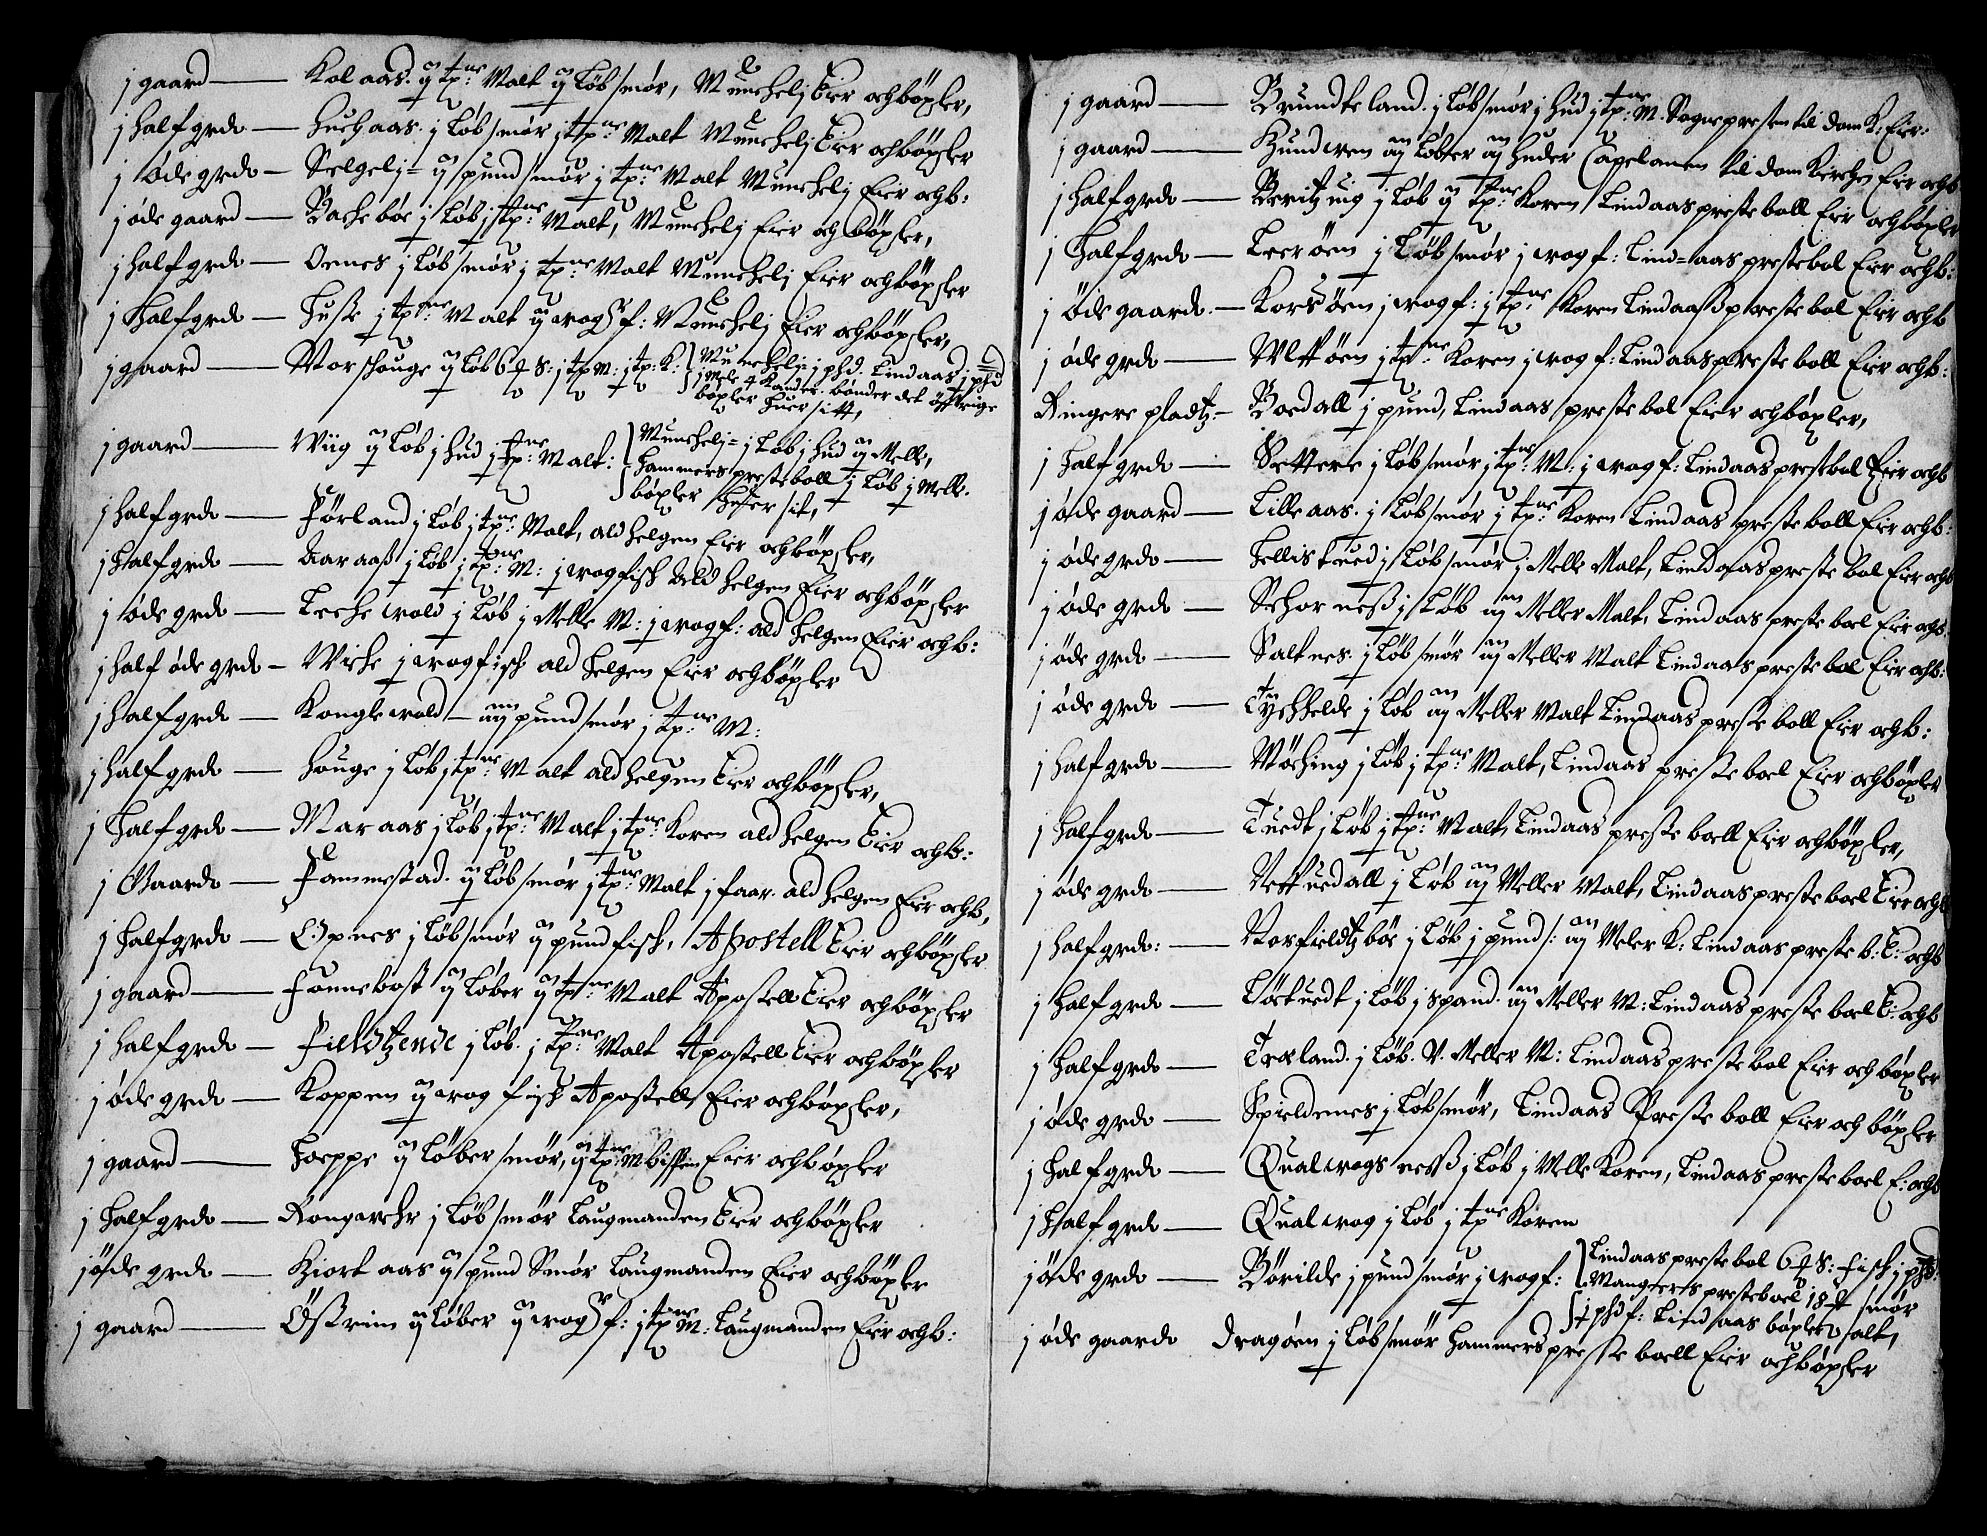 j gaard — Kolaas. ij tp:ne Malt ij Løb smør, Munchelj Eier och bøxler,
j half grd — Huchaas. j Løb smør j tp:ne Malt Munchelj Eier och bøxler
j øde grd — Selgelj= ij pund smør j tp:ne Malt Munchelj Eier och b:
j øde gaard — Bachebøe j Løb j tp:ne Malt, Munchelj Eier och bøxler,
j half grd — Oenes j Løb smør j tp:ne Malt Munchelj Eier och bøxler
j Half grd — Huse j tp:ne Malt ij wog f: Munchelj Eier och bøxler,
j gaard — Morschouge ij Løb 6 S: j tp M: j tp: K: Munchelj= j phd. Lindaas j phd
j Mele 4 Kander. bønder det øffrige
bøxler huer sitt,
j gaard — Wiig ij Løb j hud j tp:ne Malt: Munchelj= j Løb j hud ij Melle,
Hammers presteboll j Løb j Melle.
bøxler huer sit,
j half grd — Førland j Løb j tp:ne Malt, ald helgen Eier och bøxler,
j half grd — Aaraas j Løb j tp:ne M: j wog fisk Ald helgen Eier och bøxler
j øde grd — Leche wold j Løb j Melle M: j wog f: ald helgen Eier och b:
j half øde grd — Wiche j wog fisk ald helgen Eier och bøxler
j half grd — Konglewold — iij pund smør j tp:ne M:
j half grd — Houge j Løb j tp:ne Malt ald helgen Eier och bøxler,
j Half grd — Maraas j Løb j tp:ne Malt j tp:ne Koren ald helgen Eier och b:
j Gaard — Fammestad. ij Løb smør j tp:ne Malt j faar. ald helgen Eier och b,
j Half grd — Opnes j Løb smør ij pund fisk, Apostell Eier och bøxler
j gaard — Fonnebost ij Løber ij tp:ne Malt Apostell Eier och bøxler
j Half grd — Fieldtzende j Løb. j tp:ne Malt Apostell Eier och bøxler
j øde grd — Koppen ij wog fisk Apostell Eier och bøxler,
j gaard — Hoeppe ij Løber smør, ij tp:ne M bispen Eier och bøxler
j Half grd — Rongewehr j Løb smør Laugmanden Eier och bøxler
j øde grd — Hiortaas ij pund Smør Laugmanden Eier och bøxler
j gaard — Østrim ij Løber ij wog f: j tp:ne M: Laugmanden Eier och b:
j gaard — Brundteland. j Løb smør j hud j tp:ne M. Sognepresten til dom K: Eier:
j gaard — Hundwen iij Løbter iij huder Capelanen til domkerchen Eier och b
j half grd — Beritzuig j Løb ij tp:ne Koren Lindaas presteboll Eier och bøxler
j Half grd — Lerøen j Løb smør j wog f: Lind=aas prestebol Eier och b:
j øde gaard — Korsøen j wog f: j tp:ne Koren Lindaas prestebol Eier och b
j øde grd — Ulfføen j tp:ne Koren j wog f: Lindaas presteboll Eier och b:
Ringere pladtz — Boedall j pund, Lindaas prestebol Eier och bøxler,
j Half grd — Settere j Løb smør j tp:ne M: j wog f: Lindaas prestebol Eier och b
j øde gaard — Lilleaas. j Løb smør j tp:ne Koren Lindaas presteboll Eier och b:
j øde grd — Fellistued j Løb smør j Melle Malt, Lindaas prestebol Eier och b
j øde grd — Schorness j Løb iij Meller Malt, Lindaas presteboel Eier och b
j øde grd — Saltnes. j Løb smør iij Meller Malt Lindaas prestebol Eier och b:
j øde grd — Tyschhelde j Løb iij Meller Malt Lindaas presteboll Eier och b:
j half grd — Møching j Løb j tp:ne Malt, Lindaas presteboel Eier och bøxler
j Half grd — Tuedt j Løb j tp:ne Malt, Lindaas presteboell Eier och bøxler,
j øde grd — Nettuedall j Løb iij Meller Malt, Lindaas presteboel Eier och b
j half grd: — Norfieldtzbøe j Løb j pund s: iij Meler K: Lindaas preste b: E: och b
j Half grd — Løstuedt j Løb j spand: iij Meller M: Lindaas presteboel E: och b
j Half grd — Troeland. j Løb. V. Meller M: Lindaas prestebol Eier och bøxler
j øde grd — Spieldenes j Løb smør, Lindaas Presteboll Eier och bøxler
j Half grd — Qualwogsness j Løb j Melle Koren, Lindaas presteboel E: och b
j Half grd — Qualwog j Løb j tp:ne Koren
j øde grd — Børilde j pund smør j wog f: Lindaas prestebol 6 S: fisk j phd:
Mangers presteboel 18 smør
j phd f: Lindaas bøxler alt,
j øde gaard Dragøen j Løb smør Hammers presteboell Eier och bøxler